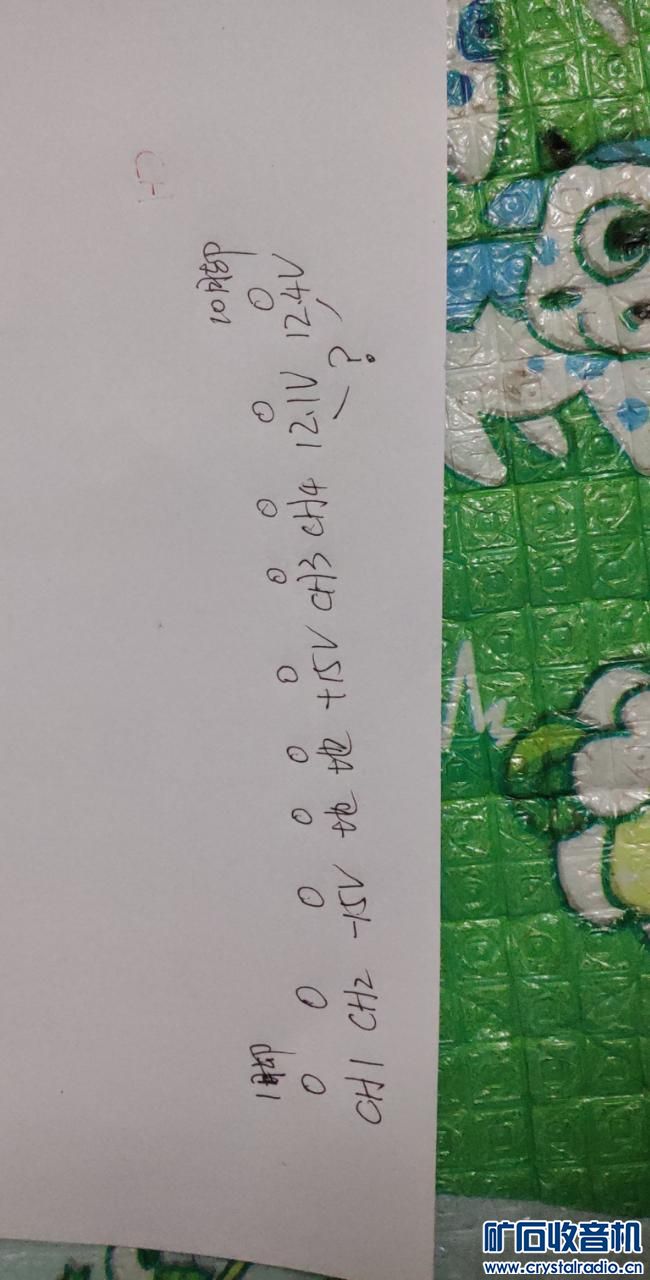 1脚 10脚
CH1 CH2 -15V 地 地 +15V CH3 CH4 12.1V 12.4V
?
矿石收音机
www.crystalradio.cn